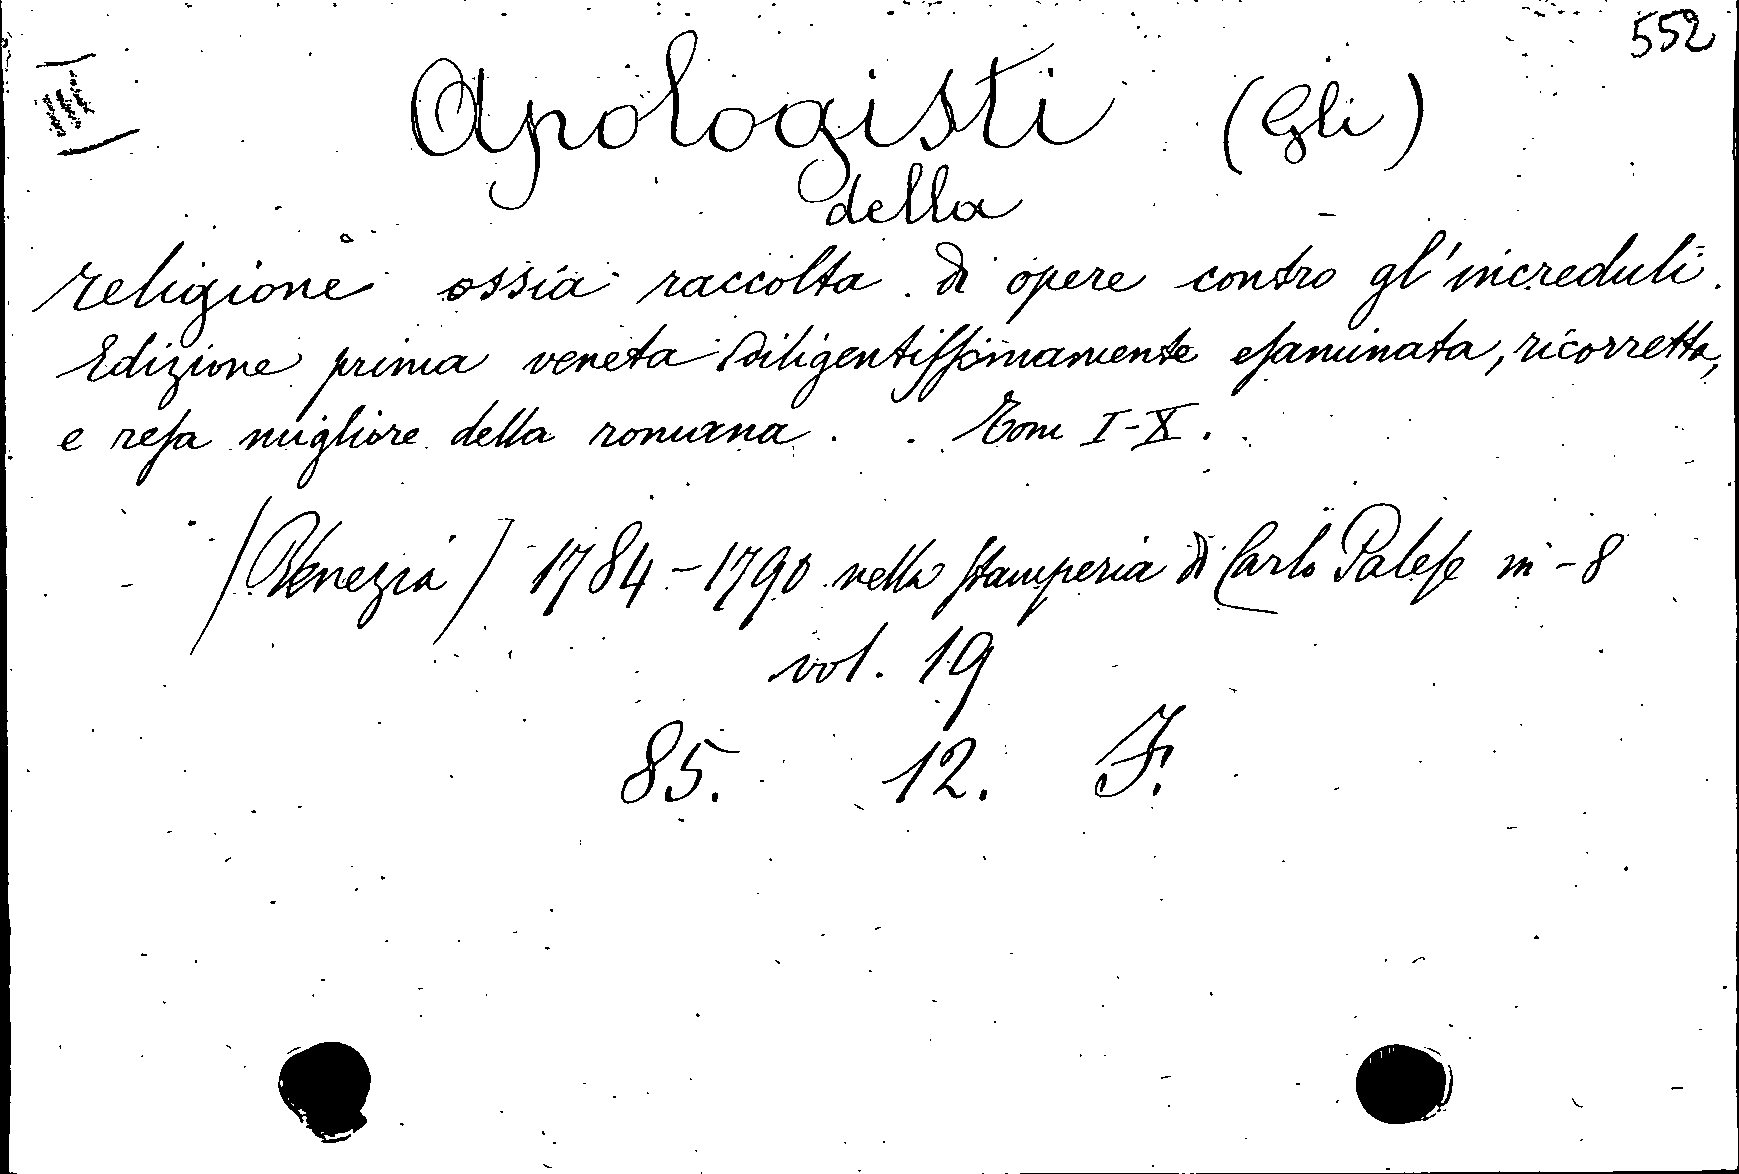 552
III
Apologisti (Gli)
della
religione ossia raccolta di opere contro gl'increduli.
Edizione prima veneta diligentiſſimamente eſaminata, ricorretta,
e reſa migliore della romana. . Tom I-X.
(Venezia) 1784-1790 nella ſtamperia di Carlo Paleſe in-8
vol. 19
85. 12. F.